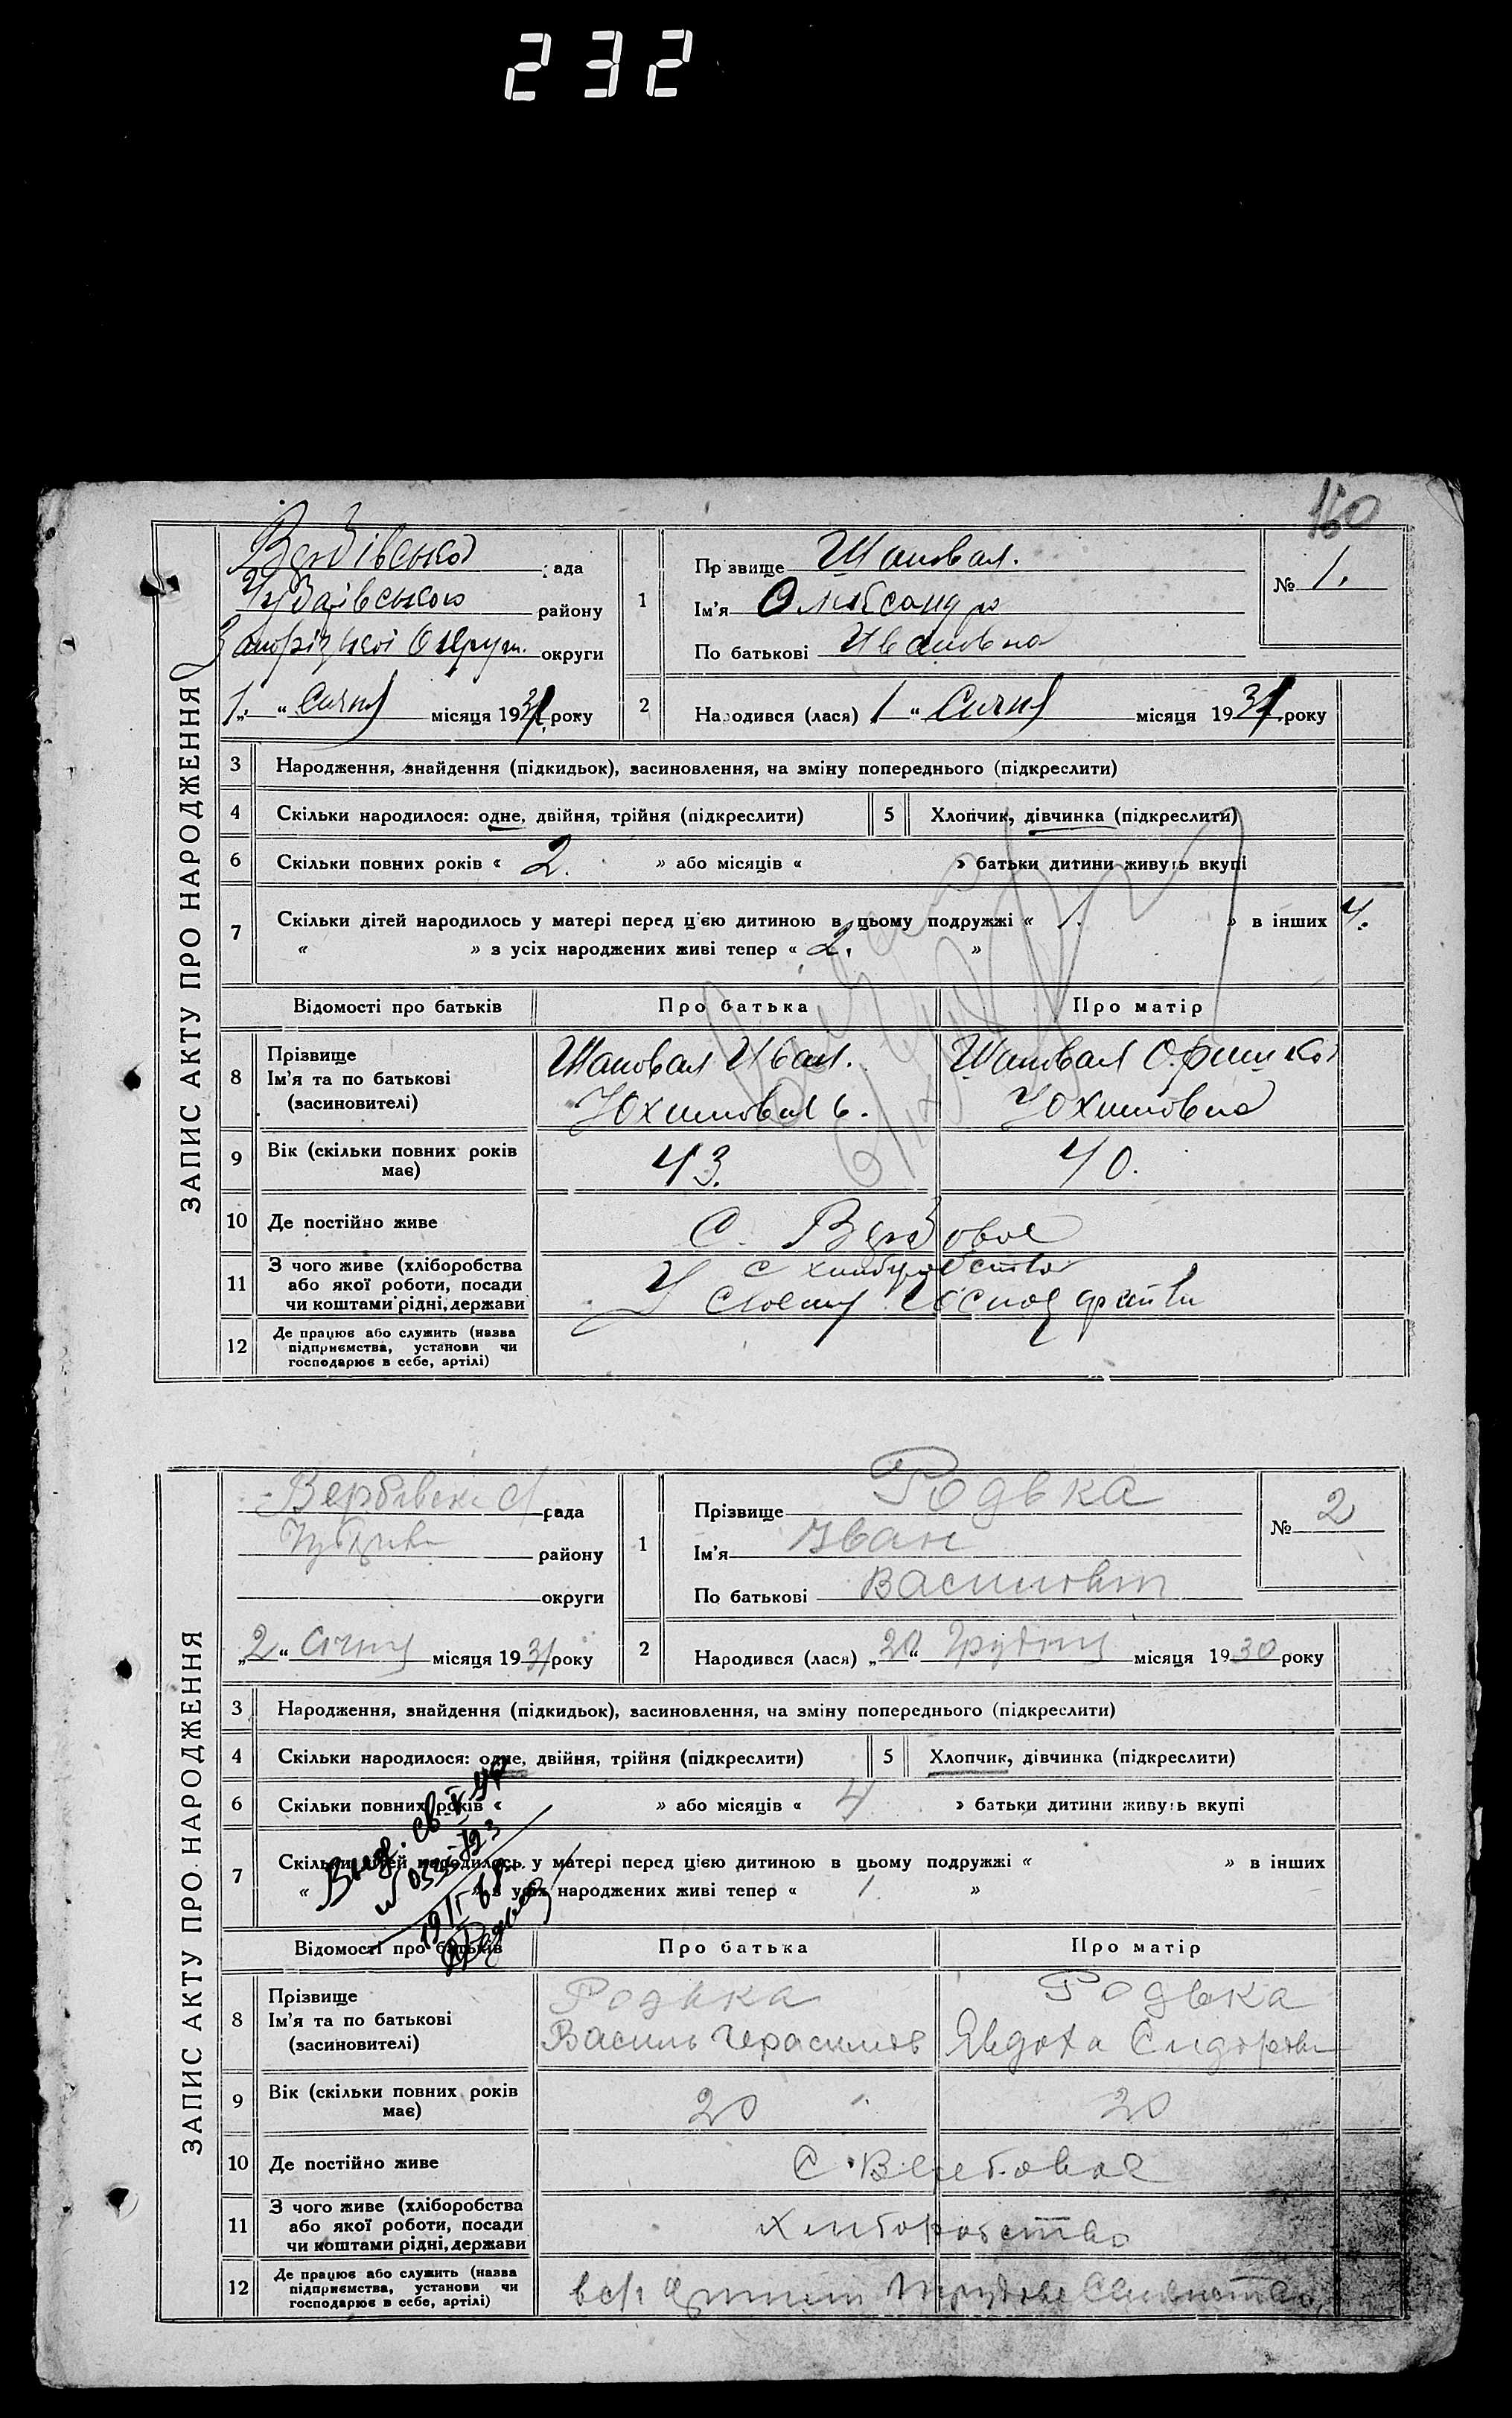 232
160
ЗАПИС АКТУ ПРО НАРОДЖЕННЯ
Вербівської рада
району
Запоріської Округи округи
„1.“ Січня місяця 1931 року
1 Прізвище Шаповал.
Ім'я Олександра
По батькові Ивановна
№ 1.
2 Народився (лася) 1 “ Січня місяця 1931 року
3 Народження, знайдення (підкидьок), засиновлення, на зміну попереднього (підкреслити)
4 Скільки народилося: одне, двійня, трійня (підкреслити) 5 Хлопчик, дівчинка (підкреслити)
6 Скільки повних років « 2. » або місяців « » батьки дитини живуть вкупі
7 Скільки дітей народилось у матері перед цією дитиною в цьому подружжі « 1. » в інших 4.
« » з усіх народжених живі тепер « 2. »
Відомості про батьків Про батька Про матір
8 Прізвище
Ім'я та по батькові
(засиновителі)
Шаповал Иван.
Юхимович.
Шаповал Оришка
Юхимовна
9 Вік (скільки повних років має) 43. 40.
10 Де постійно живе С. Вербовое
11 З чого живе (хліборобства
або якої роботи, посади
чи коштами рідні, держави
с хлиборобства
У своему Господарстви
12 Де працює або служить (назва
підприємства, установи чи
господарює в себе, артілі)
ЗАПИС АКТУ ПРО НАРОДЖЕННЯ
Вербівська рада
району
округи
„2“ Січня місяця 1931 року
1 Прізвище Родька
Ім'я Иван
По батькові Василович
№ 2
2 Народився (лася) „20“ Грудня місяця 1930 року
3 Народження, знайдення (підкидьок), засиновлення, на зміну попереднього (підкреслити)
4 Скільки народилося: одне, двійня, трійня (підкреслити) 5 Хлопчик, дівчинка (підкреслити)
6 Скільки повних років « » або місяців « 4 » батьки дитини живуть вкупі
7 Скільки дітей народилось у матері перед цією дитиною в цьому подружжі « » в інших
« » з усіх народжених живі тепер « 1. »
Відомості про батьків Про батька Про матір
8 Прізвище
Ім'я та по батькові
(засиновителі)
Родька
Василь Герасимов
Родька
Явдоха Сидоровн
9 Вік (скільки повних років має) 20 20
10 Де постійно живе С. Вербовое
11 З чого живе (хліборобства
або якої роботи, посади
чи коштами рідні, держави
хлиборобство
12 Де працює або служить (назва
підприємства, установи чи
господарює в себе, артілі)